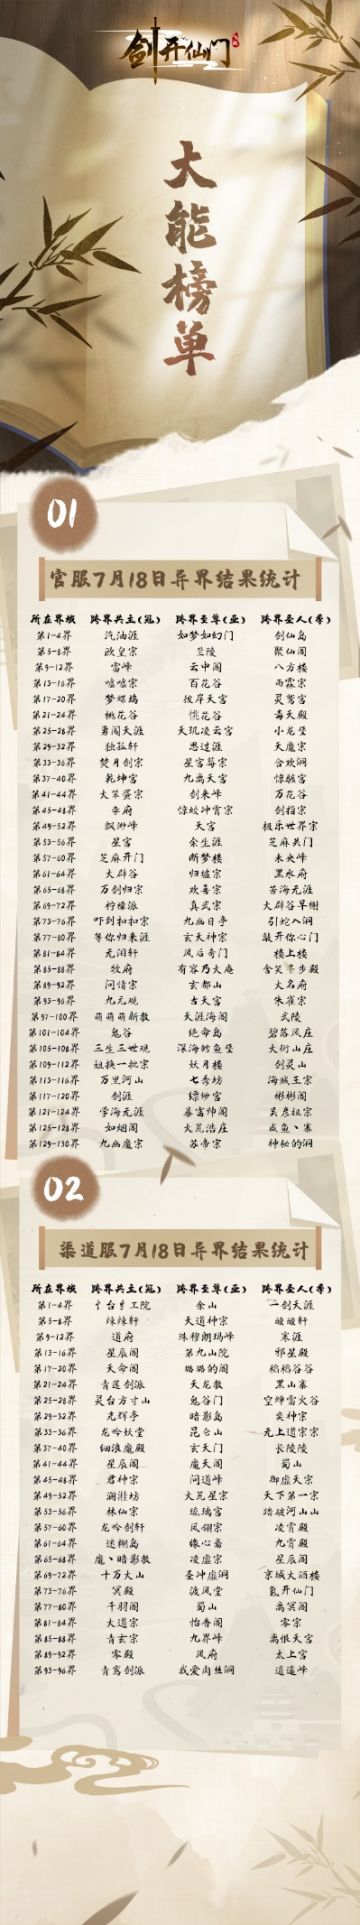 剑开仙门
大能榜单
01
官服7月18日异界结果统计
所在界域 跨界共主(冠) 跨界至尊(亚) 跨界圣人(季)
第1-4界 汽油涯 如梦如幻门 剑仙岛
第5-8界 欧皇宗 兰陵 聚仙阁
第9-12界 雷峰 云中阁 八方楼
第13-16界 嘘嘘宗 百花谷 雨霖宗
第17-20界 梦蝶坞 彼岸天宫 灵鹫宫
第21-24界 桃花谷 恍花谷 毒天殿
第25-28界 勇闯天涯 天玑凌云宫 小龙堡
第29-32界 独孤轩 思过涯 天魔宗
第33-36界 焚月剑宗 星宫莓宗 合欢洞
第37-40界 乾坤宫 九离天宫 惊骇宫
第41-44界 大笨蛋宗 剑来峰 万花谷
第45-48界 李府 惊蛟冲霄宗 剑指宗
第49-52界 飘渺峰 天宫 极乐世界宗
第53-56界 星宫 余生涯 芝麻关门
第57-60界 芝麻开门 断梦楼 未央峰
第61-64界 大辟谷 归墟宗 黑水府
第65-68界 万剑归宗 欢喜宗 苦海无涯
第69-72界 柠檬派 真武宗 大辟谷旱榭
第73-76界 吓到扣扣宗 九幽日亭 引蛇入洞
第77-80界 等你归来涯 玄天神宗 敲开你心门
第81-84界 无泪轩 风后奇门 楼上楼
第85-88界 牧府 有容乃大庵 含笑半步殿
第89-92界 问情宗 玄都山 大名府
第93-96界 九元观 古天宫 朱雀宗
第97-100界 萌萌萌新教 天涯海阁 武陵
第101-104界 鬼谷 绝命岛 碧落风庄
第105-108界 三生三世观 深海鳕鱼堡 大衍山庄
第109-112界 姐换一批宗 妖月楼 剑灵山
第113-116界 万里河山 七秀坊 海贼王宗
第117-120界 剑涯 缥缈宫 彬彬阁
第121-124界 学海无涯 暴富帅阁 吴彦祖宗
第125-128界 如烟阁 大荒浩庄 咸鱼、寨
第129-130界 九幽魔宗 苏帝宗 神秘的洞
02
渠道服7月18日异界结果统计
所在界域 跨界共主(冠) 跨界至尊(亚) 跨界圣人(季)
第1-4界 余山 一剑天涯
第5-8界 辣辣轩 天道神宗 酸酸轩
第9-12界 道府 珠穆朗玛峰 宋涯
第13-16界 星辰阁 第九山院 邪星殿
第17-20界 天命阁 璐璐的阁 稻稻谷谷
第21-24界 青莲剑派 天龙教 黑山寨
第25-28界 灵台方寸山 鬼谷门 空蝉雷火谷
第29-32界 光辉亭 暗影岛 奕神宗
第33-36界 龙吟妖堂 昆仑山 无上道宗宗
第37-40界 细淮魔殿 玄天门 长陵陵
第41-44界 星辰阁 魔天阁 蜀山
第45-48界 君神宗 问道峰 御虚天宗
第49-52界 澜湉坊 大荒星宗 天下第一宗
第53-56界 林仙宗 琉璃宫 踏破河山山
第57-60界 龙吟剑轩 凤翎宗 凌霄殿
第61-64界 迷糊岛 缘心斋 九霄殿
第65-68界 魔丶暗影教 凌虚宗 星辰阁
第69-72界 十万大山 圣冲虚洞 京城大酒楼
第73-76界 冥殿 渡风堂 氪开仙门
第77-80界 千羽阁 蜀山 离冥阁
第81-84界 大道宗 怡香阁 零宗
第85-88界 青玄宗 九界峰 离恨天宫
第89-92界 零殿 凤府 太上宫
第93-96界 青鸾剑派 我爱肉丝洞 逍遥峰